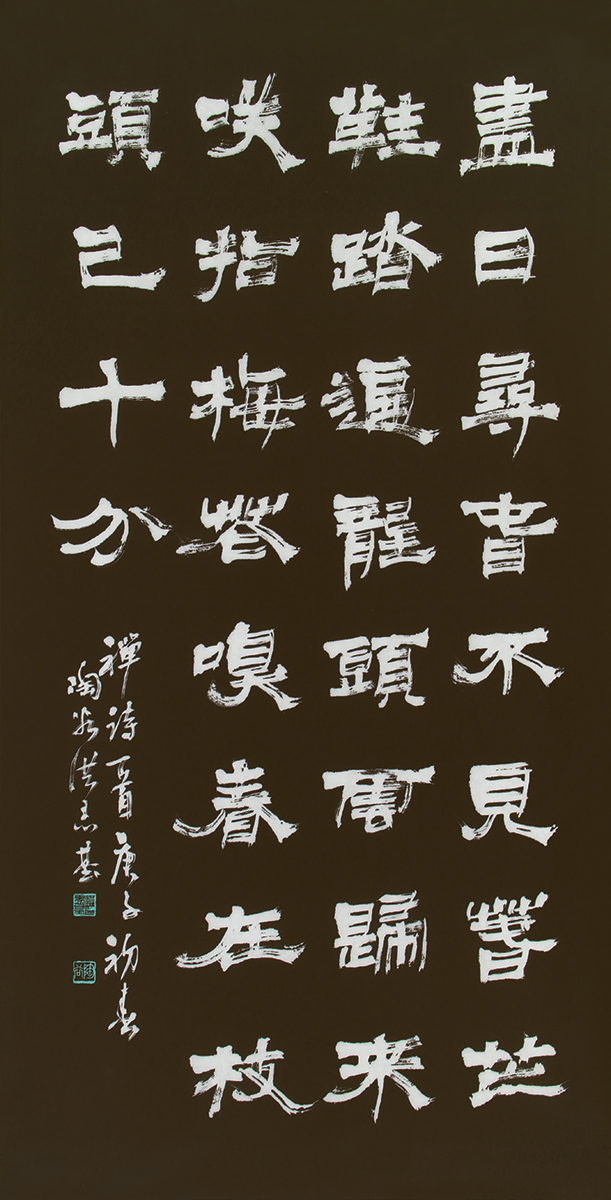 盡日尋旾不見萅芒
鞋踏遍龍頭雲歸來
咲指梅花嗅春在枝
頭已十分
禪詩一首庚子初春
洪志基